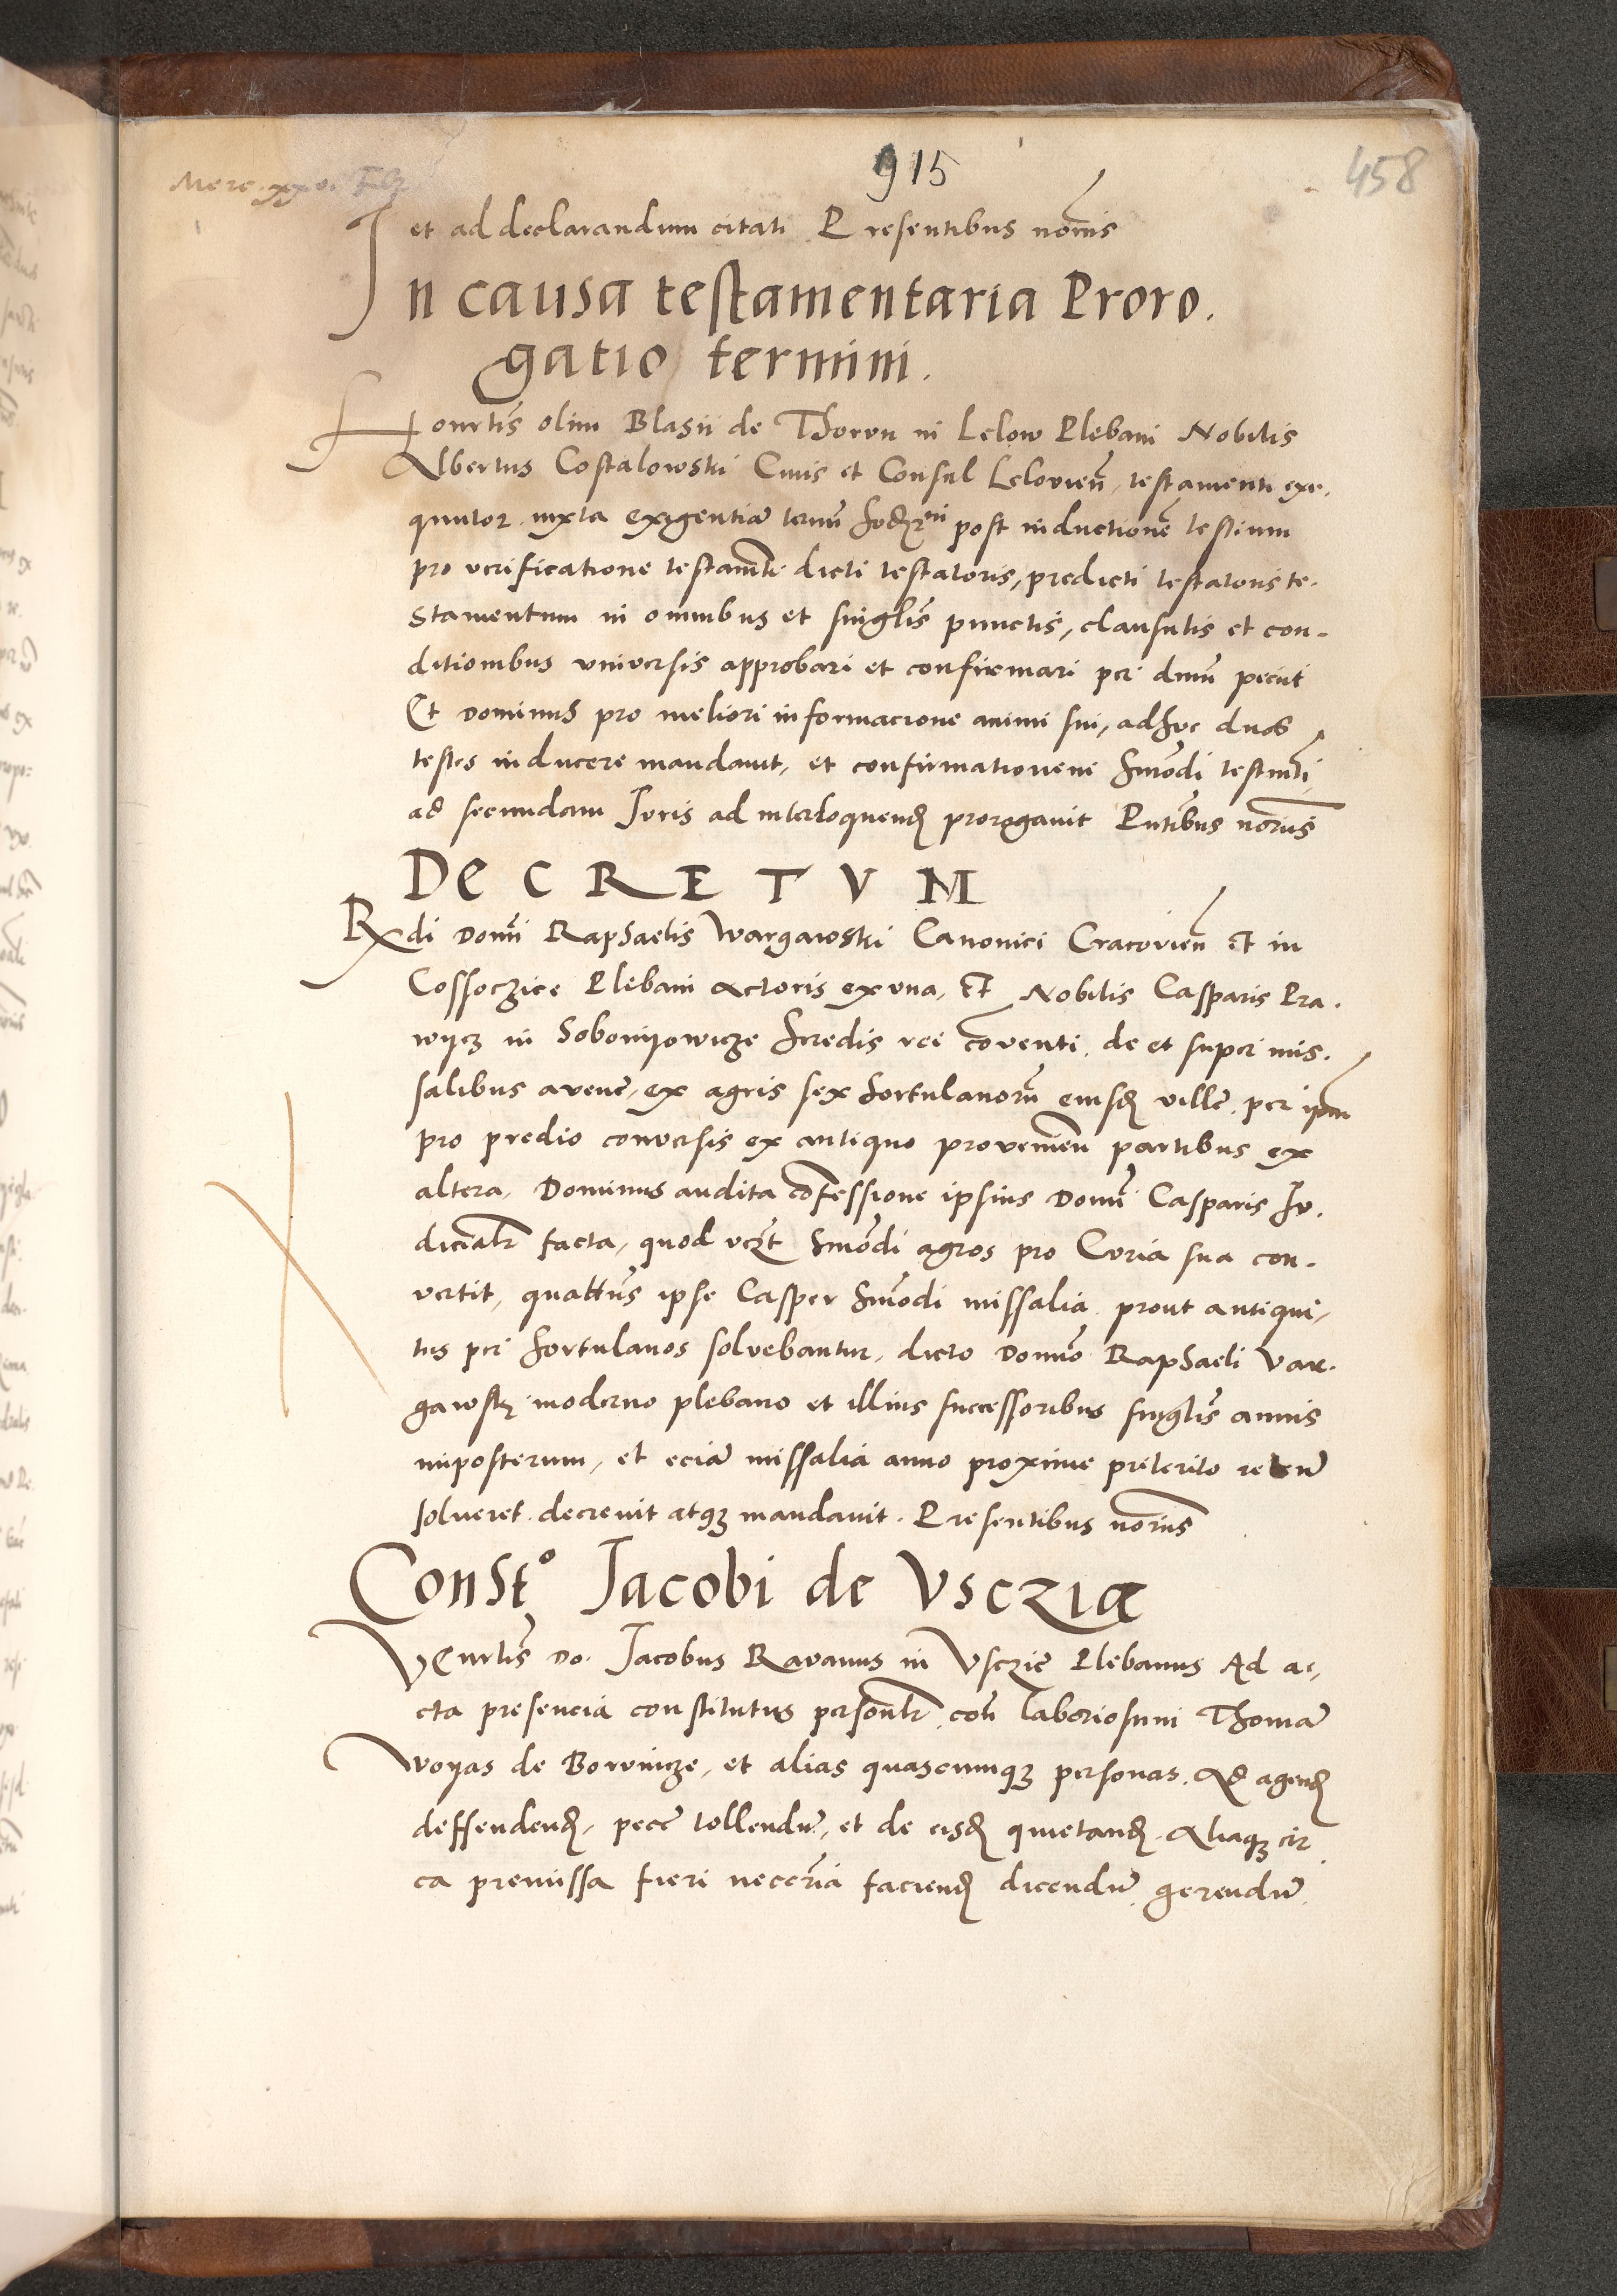 915
458
Merc. xxvi Feb
et ad declarandum citati Presentibus norijs
In causa testamentaria Proro.
gatio termini.
Honrtis olim Blasii de Thorvn in Lelow Plebani Nobilis
Albertus Costalowski Ciuis et Consul Lelovien̄, testamenti exe.
quutor iuxta exigentiā termī hodierni post inductionē testium
pro verificatione testamti dicti testatoris, predicti testatoris te-
stamentum in omnibus et singlis punctis, clausulis et con-
ditionibus vniversis approbari et confirmari per dnm̄ peciit
Et Dominus pro meliori informacione animi sui, adhvc duos
testes inducere mandauit, et confirmationem hmōdi testmti
ad secundam Jvris ad interloquend prorogavit Pntibus norijs
DECRETVM
Rdi Domī Raphaelis Wargawski Canonici Cracovien̄ et in
Cossoczice Plebani Actoris ex vna, et Nobilis Casparis Pra.
wijcz in Sobonijowicze heredis rei cōventi, de et super mis.
salibus avene, ex agris sex hortulanorū eiusd ville per ipm
pro predio conversis ex antiquo provenien̄ partibus ex
altera, Dominus audita cōfessione ipsius Domī Casparis Jv.
dicialr facta, quod vczt hmōdi agros pro Cvria sua con-
vertit, quattus ipse Casper hmōdi missalia prout antiqui,
tus per hortulanos solvebantur, dicto Domō Raphaeli Var.
gawsky moderno plebano et illius successoribus singlis annis
inposterum, et eciā missalia anno proxime preterito reten̄
solveret decrevit atq mandavit. Presentibus norijs
Constº Jacobi de Vscziæ
VEnrlis Do. Jacobus Ravanus in Vsczie Plebanus Ad ac,
cta presencia constitutus personlr con̄ laboriosum Thomā
Woyas de Borvicze, et alias quascunq personas. Ad agend
deffendend, pecē tollendū, et de eisd quietand. Aliaq cir
ca premissa fieri necēria faciend dicendū gerendū